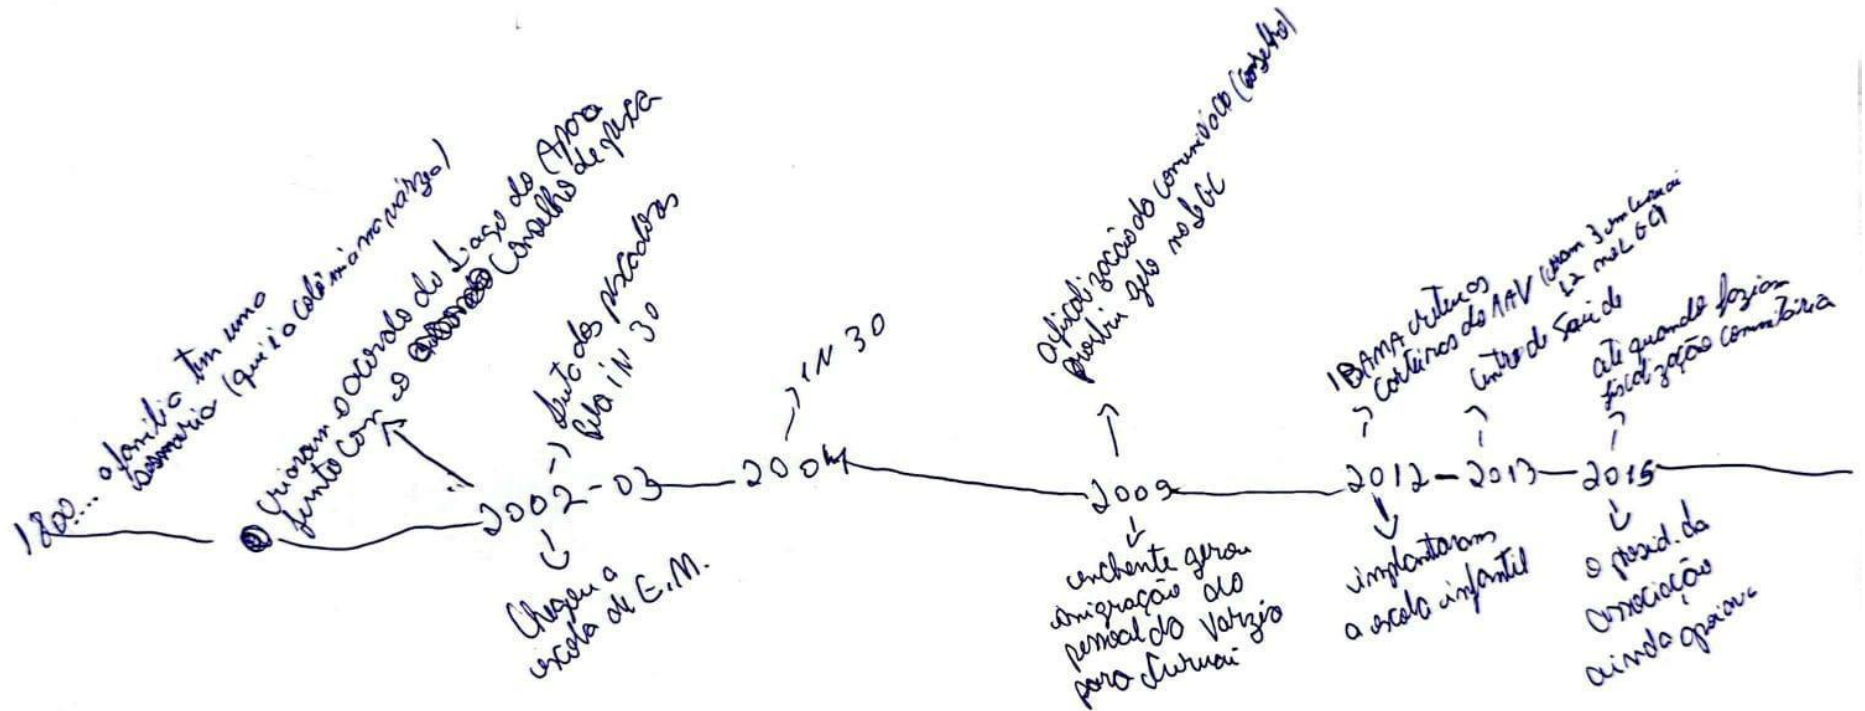 1800.... a família tem uma
sesmaria (que é a colônia na várzea)
criaram o acordo do Lago do Apara
junto com o Conselho de pesca
2002-03
Luta dos pescadores
pela iN 30
Chegou a
escola de E.M.
2004
IN 30
2009
a fiscalização do comunitário (conselho)
proibiu gelo no LGC
enchente gerou
emigração do
pessoal da Varzea
para Curuai
2012 - 2013 - 2015
IBAMA retém os
carteiras do AAV (eram 3 em Curuai
12 no LGC)
implantaram
a escola infantil
Centro de Saúde
até quando faziam
fiscalização comunitária
o presid. da
associação
ainda apoiava